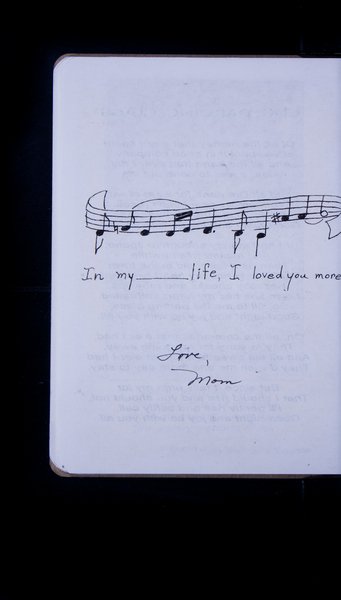 In my_____life, I loved you more
Love,
Mom